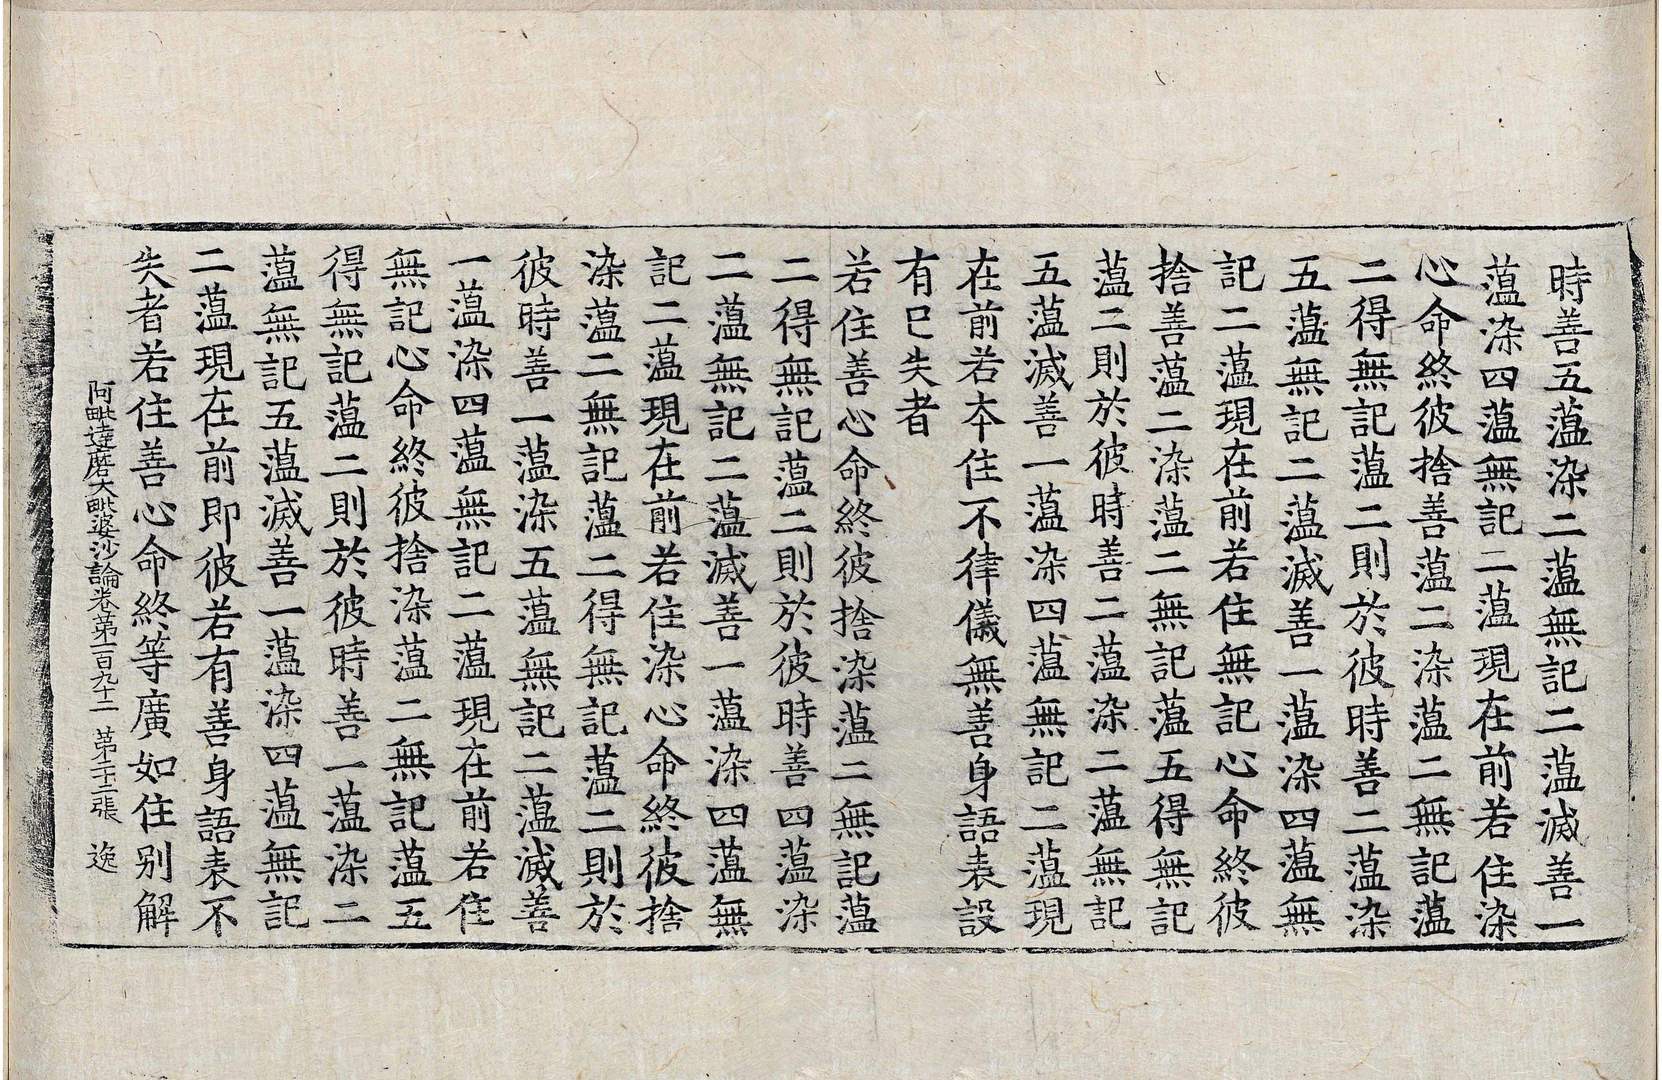 時善五蘊染二蘊無記二蘊滅善一
蘊染四蘊無記二蘊現在前若住染
心命終彼捨善蘊二染蘊二無記蘊
二得無記蘊二則於彼時善二蘊染
五蘊無記二蘊滅善一蘊染四蘊無
記二蘊現在前若住無記心命終彼
捨善蘊二染蘊二無記蘊五得無記
蘊二則於彼時善二蘊染二蘊無記
五蘊滅善一蘊染四蘊無記二蘊現
在前若本住不律儀無善身語表設
有已失者
若住善心命終彼捨染蘊二無記蘊
二得無記蘊二則於彼時善四蘊染
二蘊無記二蘊滅善一蘊染四蘊無
記二蘊現在前若住染心命終彼捨
染蘊二無記蘊二得無記蘊二則於
彼時善一蘊染五蘊無記二蘊滅善
一蘊染四蘊無記二蘊現在前若住
無記心命終彼捨染蘊二無記蘊五
得無記蘊二則於彼時善一蘊染二
蘊無記五蘊滅善一蘊染四蘊無記
二蘊現在前即彼若有善身語表不
失者若住善心命終等廣如住別解
阿毗達磨大毗婆沙論卷第一百九十二 第二十三張 逸